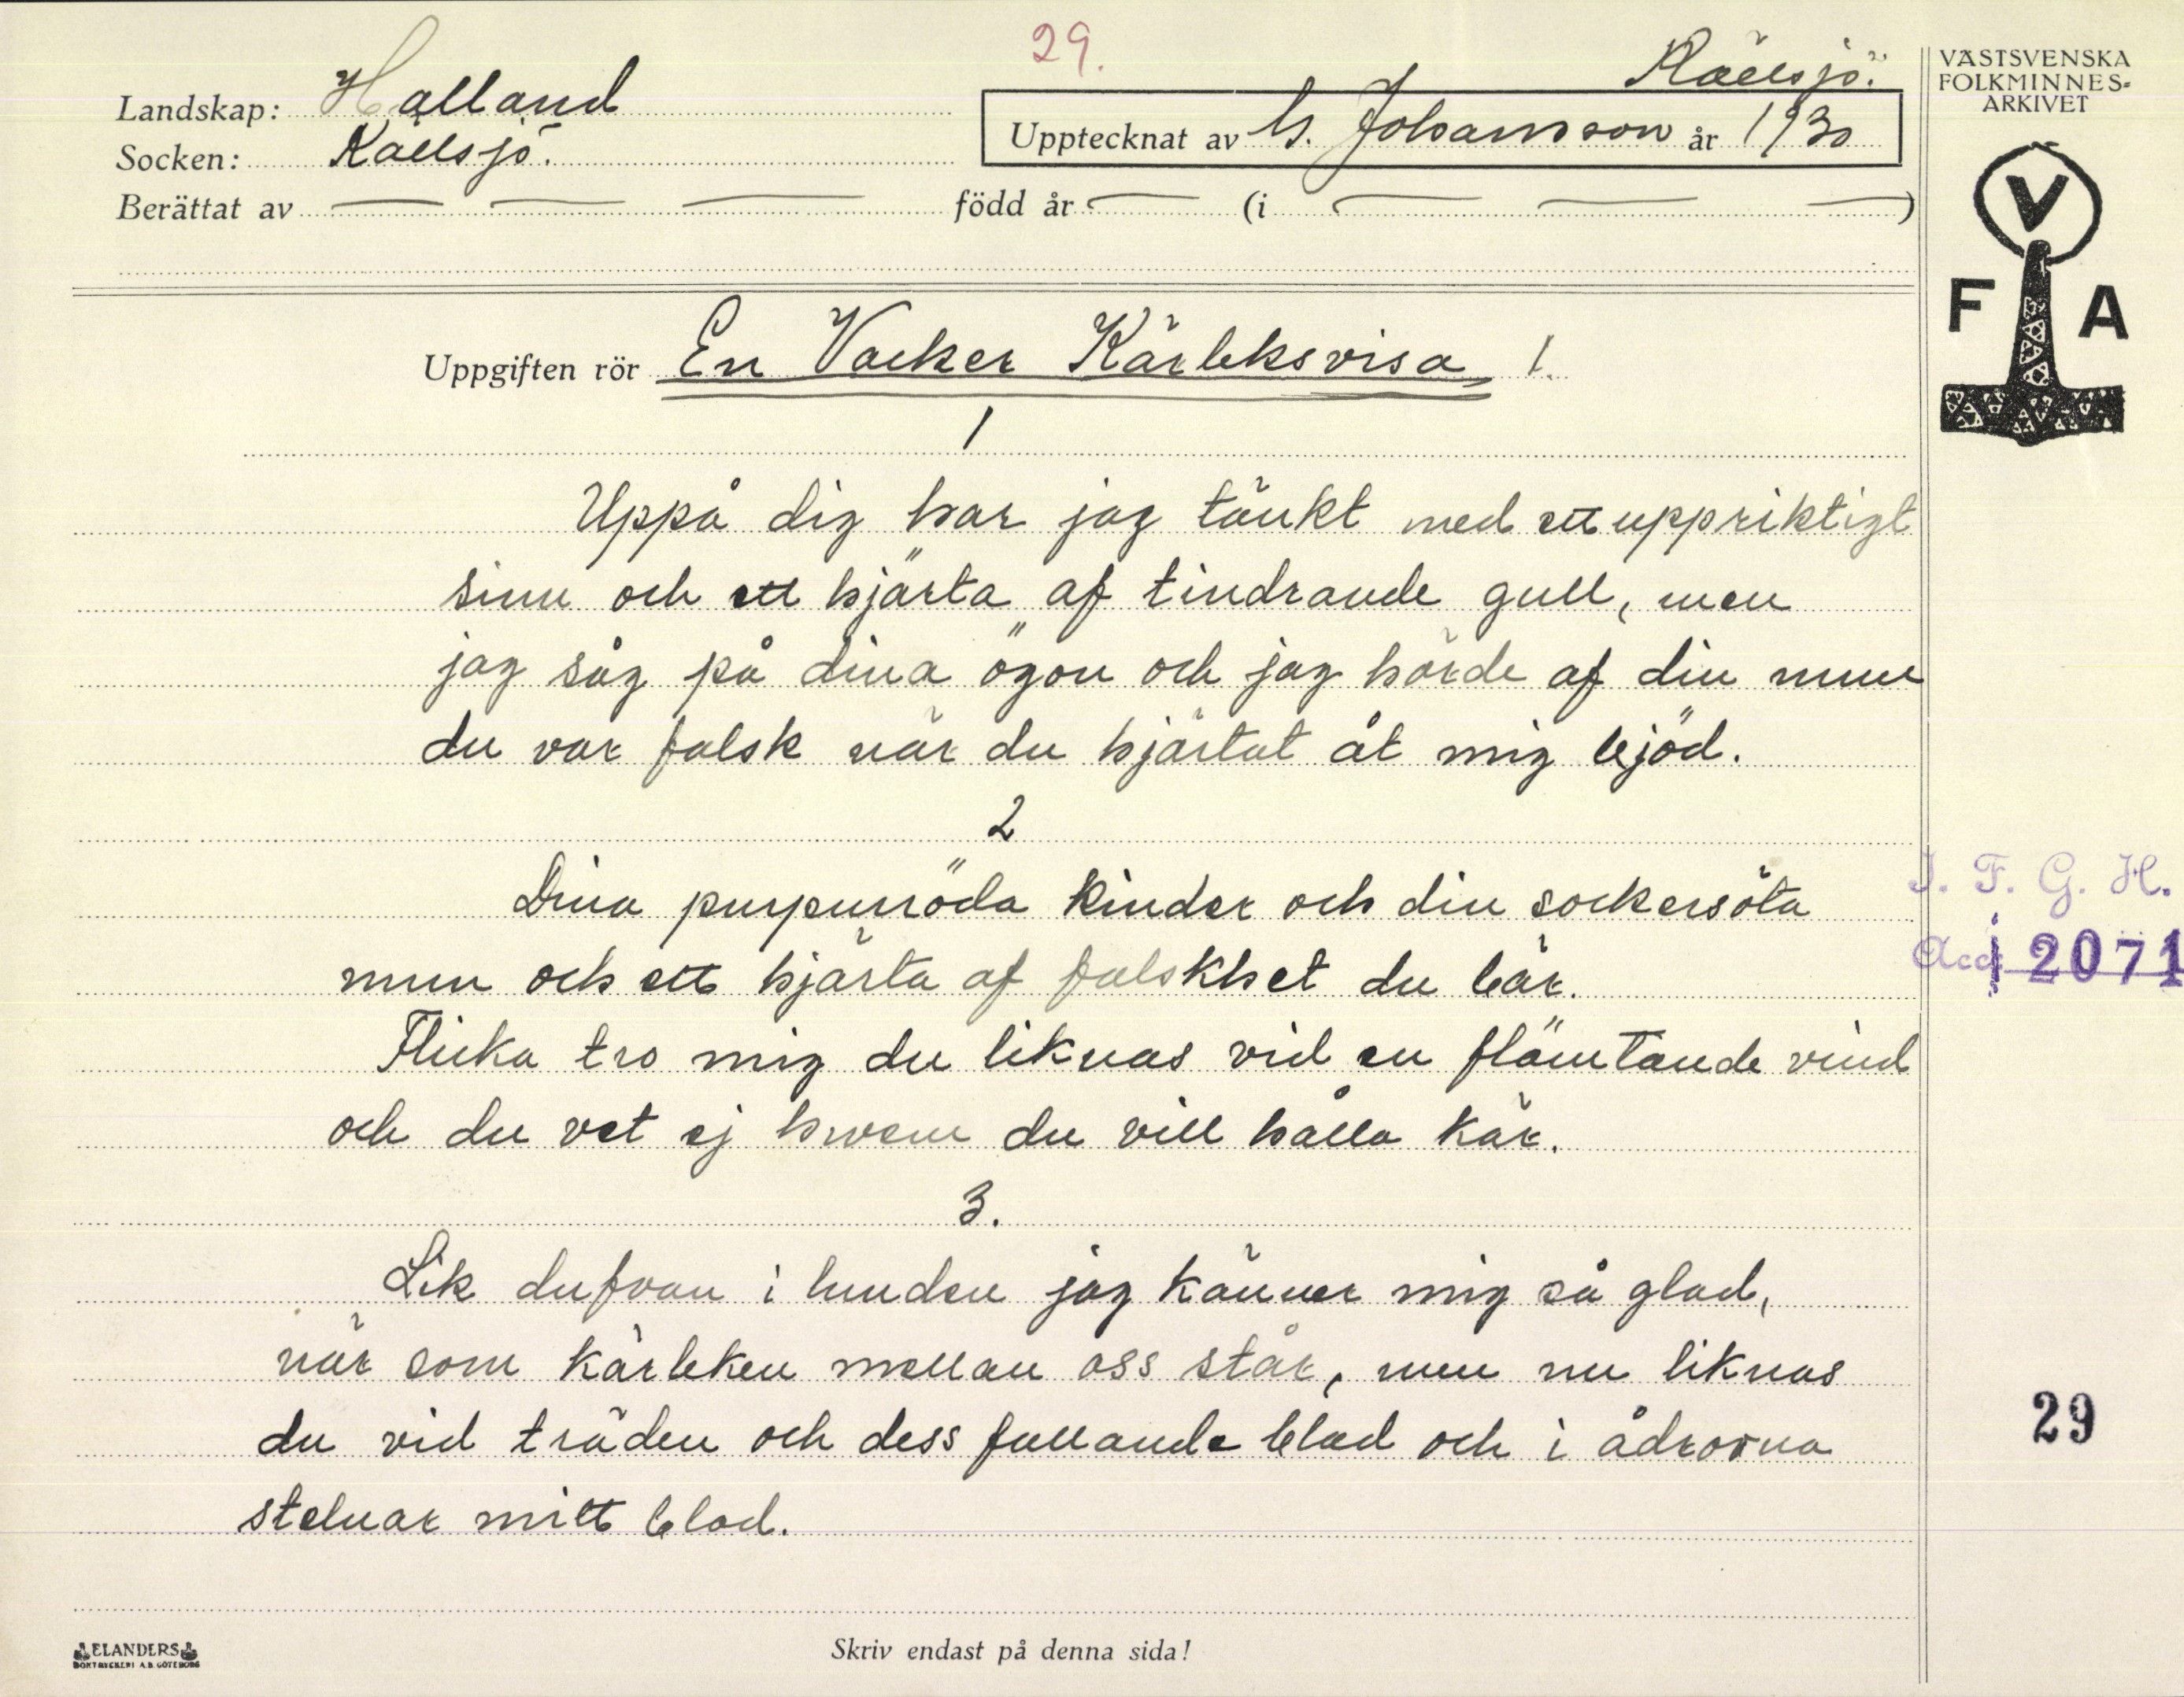 29.
Källsjö.
Landskap: Halland
Socken: Källsjö.
Upptecknat av Johansson år 1930
Berättat av — — — född år — (i — — —)
VÄSTSVENSKA
FOLKMINNES-
ARKIVET
V
F A
Uppgiften rör En Vacker Kärleksvisa 1.
1
Uppå dig har jag tänkt med ett uppriktigt
sinn och ett hjärta af tindrande gull, men
jag såg på dina ögon och jag hörde af din mun
du var falsk när du hjärtat åt mig bjöd.
2
Dina purpurröda kinder och din sockersöta
mun och ett hjärta af falskhet du bär.
Flicka tro mig du liknas vid en flämtande vind
och du vet ej hwem du vill hålla kär.
3.
Lik dufvan i lunden jag känner mig så glad,
när som kärleken mellan oss står, men nu liknas
du vid träden och dess fallande blad och i ådrorna
stelnar mitt blod.
I. F. G. H.
Acc 2071
29
ELANDERS
BOKTRYCKERI A.B. GÖTEBORG
Skriv endast på denna sida!